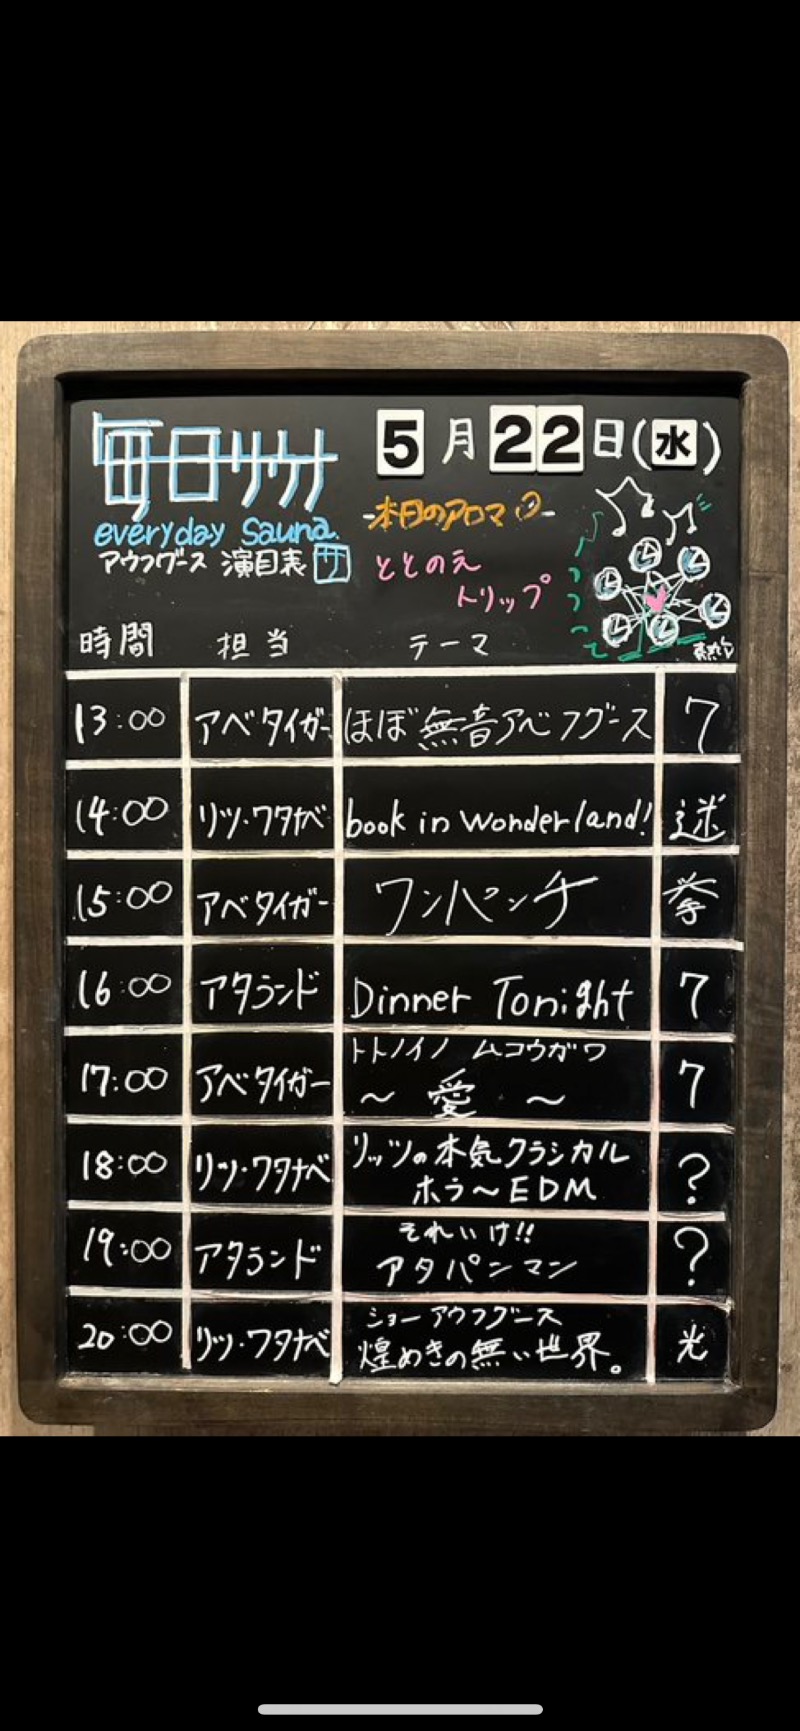 毎日サウナ
everyday Sauna.
アウフグース 演目表 サ
5月22日(水)
-本日のアロマ-
ととのえ
トリップ
っ
っ
っ
て
時間 担当 テーマ 熱さ
13:00 アベタイガー ほぼ無音アベフグース 7
14:00 リツ・ワタナベ book in wonderland! 迷
15:00 アベタイガー ワンパンチ 拳
16:00 アタランド Dinner Tonight 7
17:00 アベタイガー トトノイノ ムコウガワ
～ 愛 ～ 7
18:00 リツ・ワタナベ リッツの本気クラシカル
ホラ～EDM ?
19:00 アタランド それいけ!!
アタパンマン ?
20:00 リツ・ワタナベ ショーアウフグース
煌めきの無い世界。 光